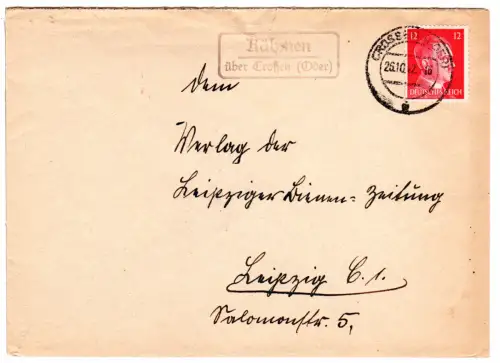 über Crossen (Oder)
12 12
DEUTSCHES REICH
CROSSEN
26.10.42
dem
Verlag der
Leipziger Bienen-Zeitung
Leipzig C. 1.
Salomonstr. 5,